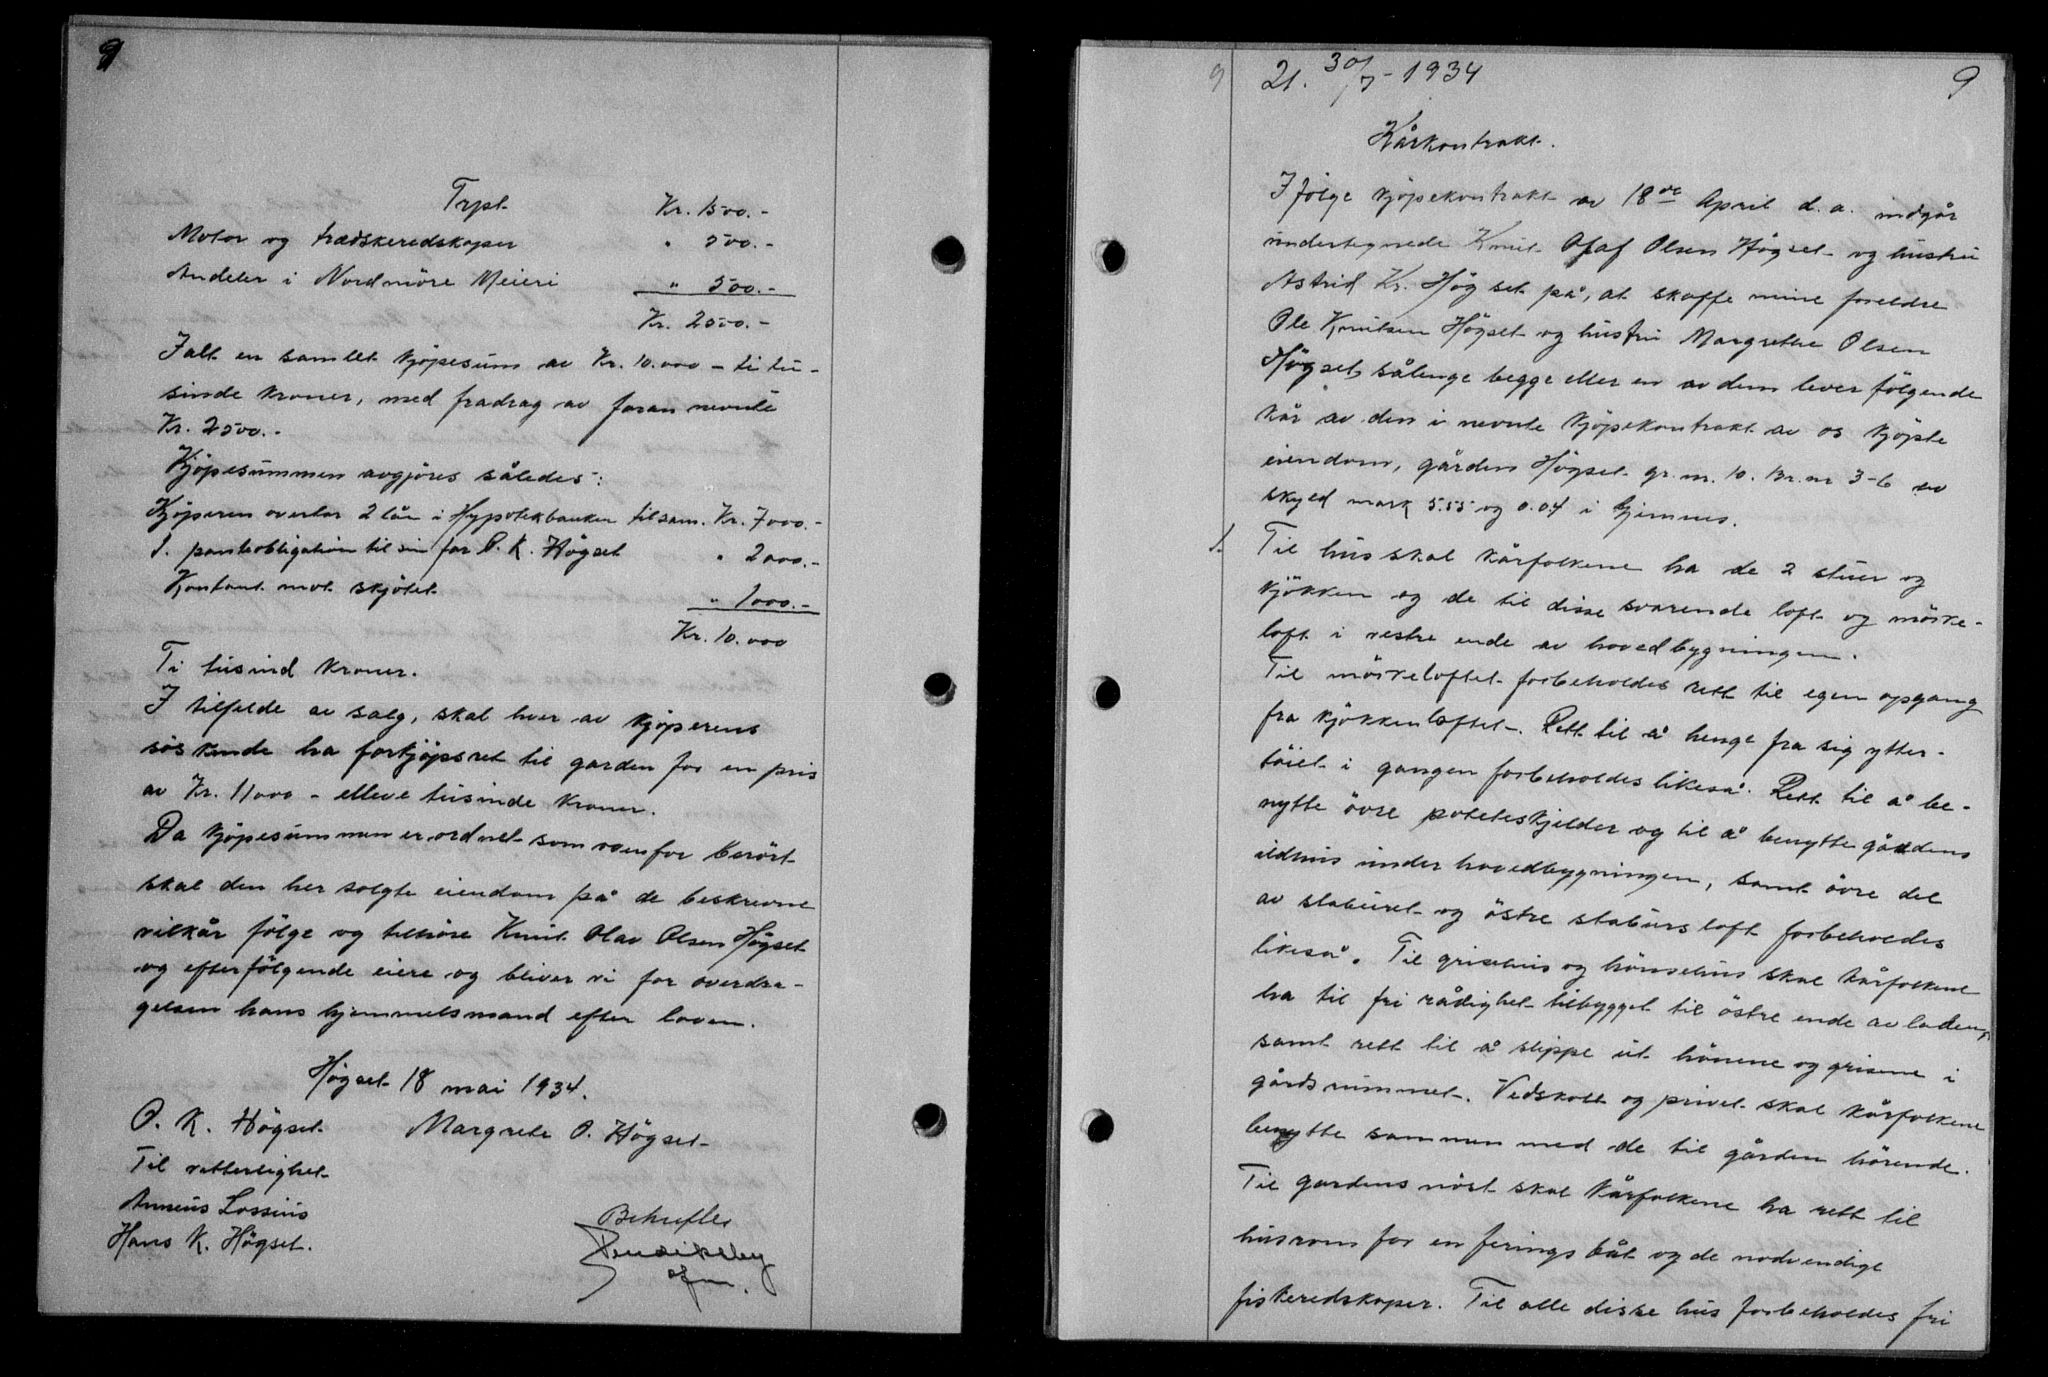 9
Trpt Kr. 1500.-
Motor og trædskeredskaper " 500.-
Andeler i Nordmöre Meieri " 500.-
Kr. 2500.-
Ialt en samlet kjöpesum av Kr. 10.000 - ti tu-
sinde kroner, med fradrag av foran nevnte
Kr. 2500.-
Kjöpesummen avgjöres således:
Kjöperen overtar 2 lån i Hypotekbanken tilsam. Kr. 7000.-
1. panteobligation til sin far O. K. Högset " 2000.-
Kontant mot skjötet " 1000.-
Kr. 10.000
Ti tusind kroner.
I tilfelde av salg, skal hver av kjöperens
söskende ha forkjöpsret til garden for en pris
av Kr. 11000 - elleve tusinde kroner.
Da kjöpesummen er ordnet som ovenfor berört
skal den her solgte eiendom på de beskrevne
vilkår fölge og tilhöre Knut Olav Olsen Högset
og efterfölgende eiere og bliver vi for overdra-
gelsen hans hjemmelsmand efter loven.
Högset 18 mai 1934.
O. K. Högset Margrete O. Högset
Til vitterlighet
Anneus Lossius
Hans K. Högset.
Bekreftes
9 21. 30/7-1934 9
Kårkontrakt.
Ifölge kjöpekontrakt av 18de April d.a. indgår
undertegnede Knut Olaf Olsen Högset og hustru
Astrid Kr. Högset på, at skaffe mine foreldre
Ole Knutsen Högset og hustru Margrethe Olsen
Högset, sålenge begge eller en av dem lever fölgende
kår av den i nevnte kjöpekontrakt av os kjöpte
eiendom, gården Högset gr.nr. 10. br.nr 3-6 av
skyld mark 5.55 og 0.04 i Gjemnes.
1. Til hus skal kårfolkene ha de 2 stuer og
kjökken og de til disse svarende loft og mörke-
loft i vestre ende av hovedbygningen.
Til mörkeloftet forbeholdes rett til egen opgang
fra kjökkenloftet. Rett til å henge fra sig ytter-
töiet i gangen forbeholdes likeså. Rett til å be-
nytte övre poteteskjelder og til å benytte gårdens
ildhus under hovedbygningen, samt övre del
av staburet og östre staburs loft forbeholdes
likeså. Til grisehus og hönsehus skal kårfolkene
ha til fri rådighet tilbygget til östre ende av laden,
samt rett til å slippe ut hönene og grisene i
gårdsrummet. Vedskott og privet skal kårfolkene
benytte sammen med de til gården hörende.
Til gardens nöst skal kårfolkene ha rett til
husrom for en ferings båt og de nodvendige
fiskeredskaper. Til alle disse hus forbeholdes fri